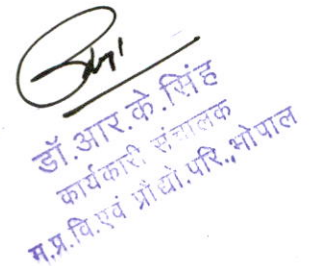 डॉ.आर.के.सिंह
कार्यकारी संचालक
म.प्र.वि.एवं प्रौद्यो.परि.,भोपाल